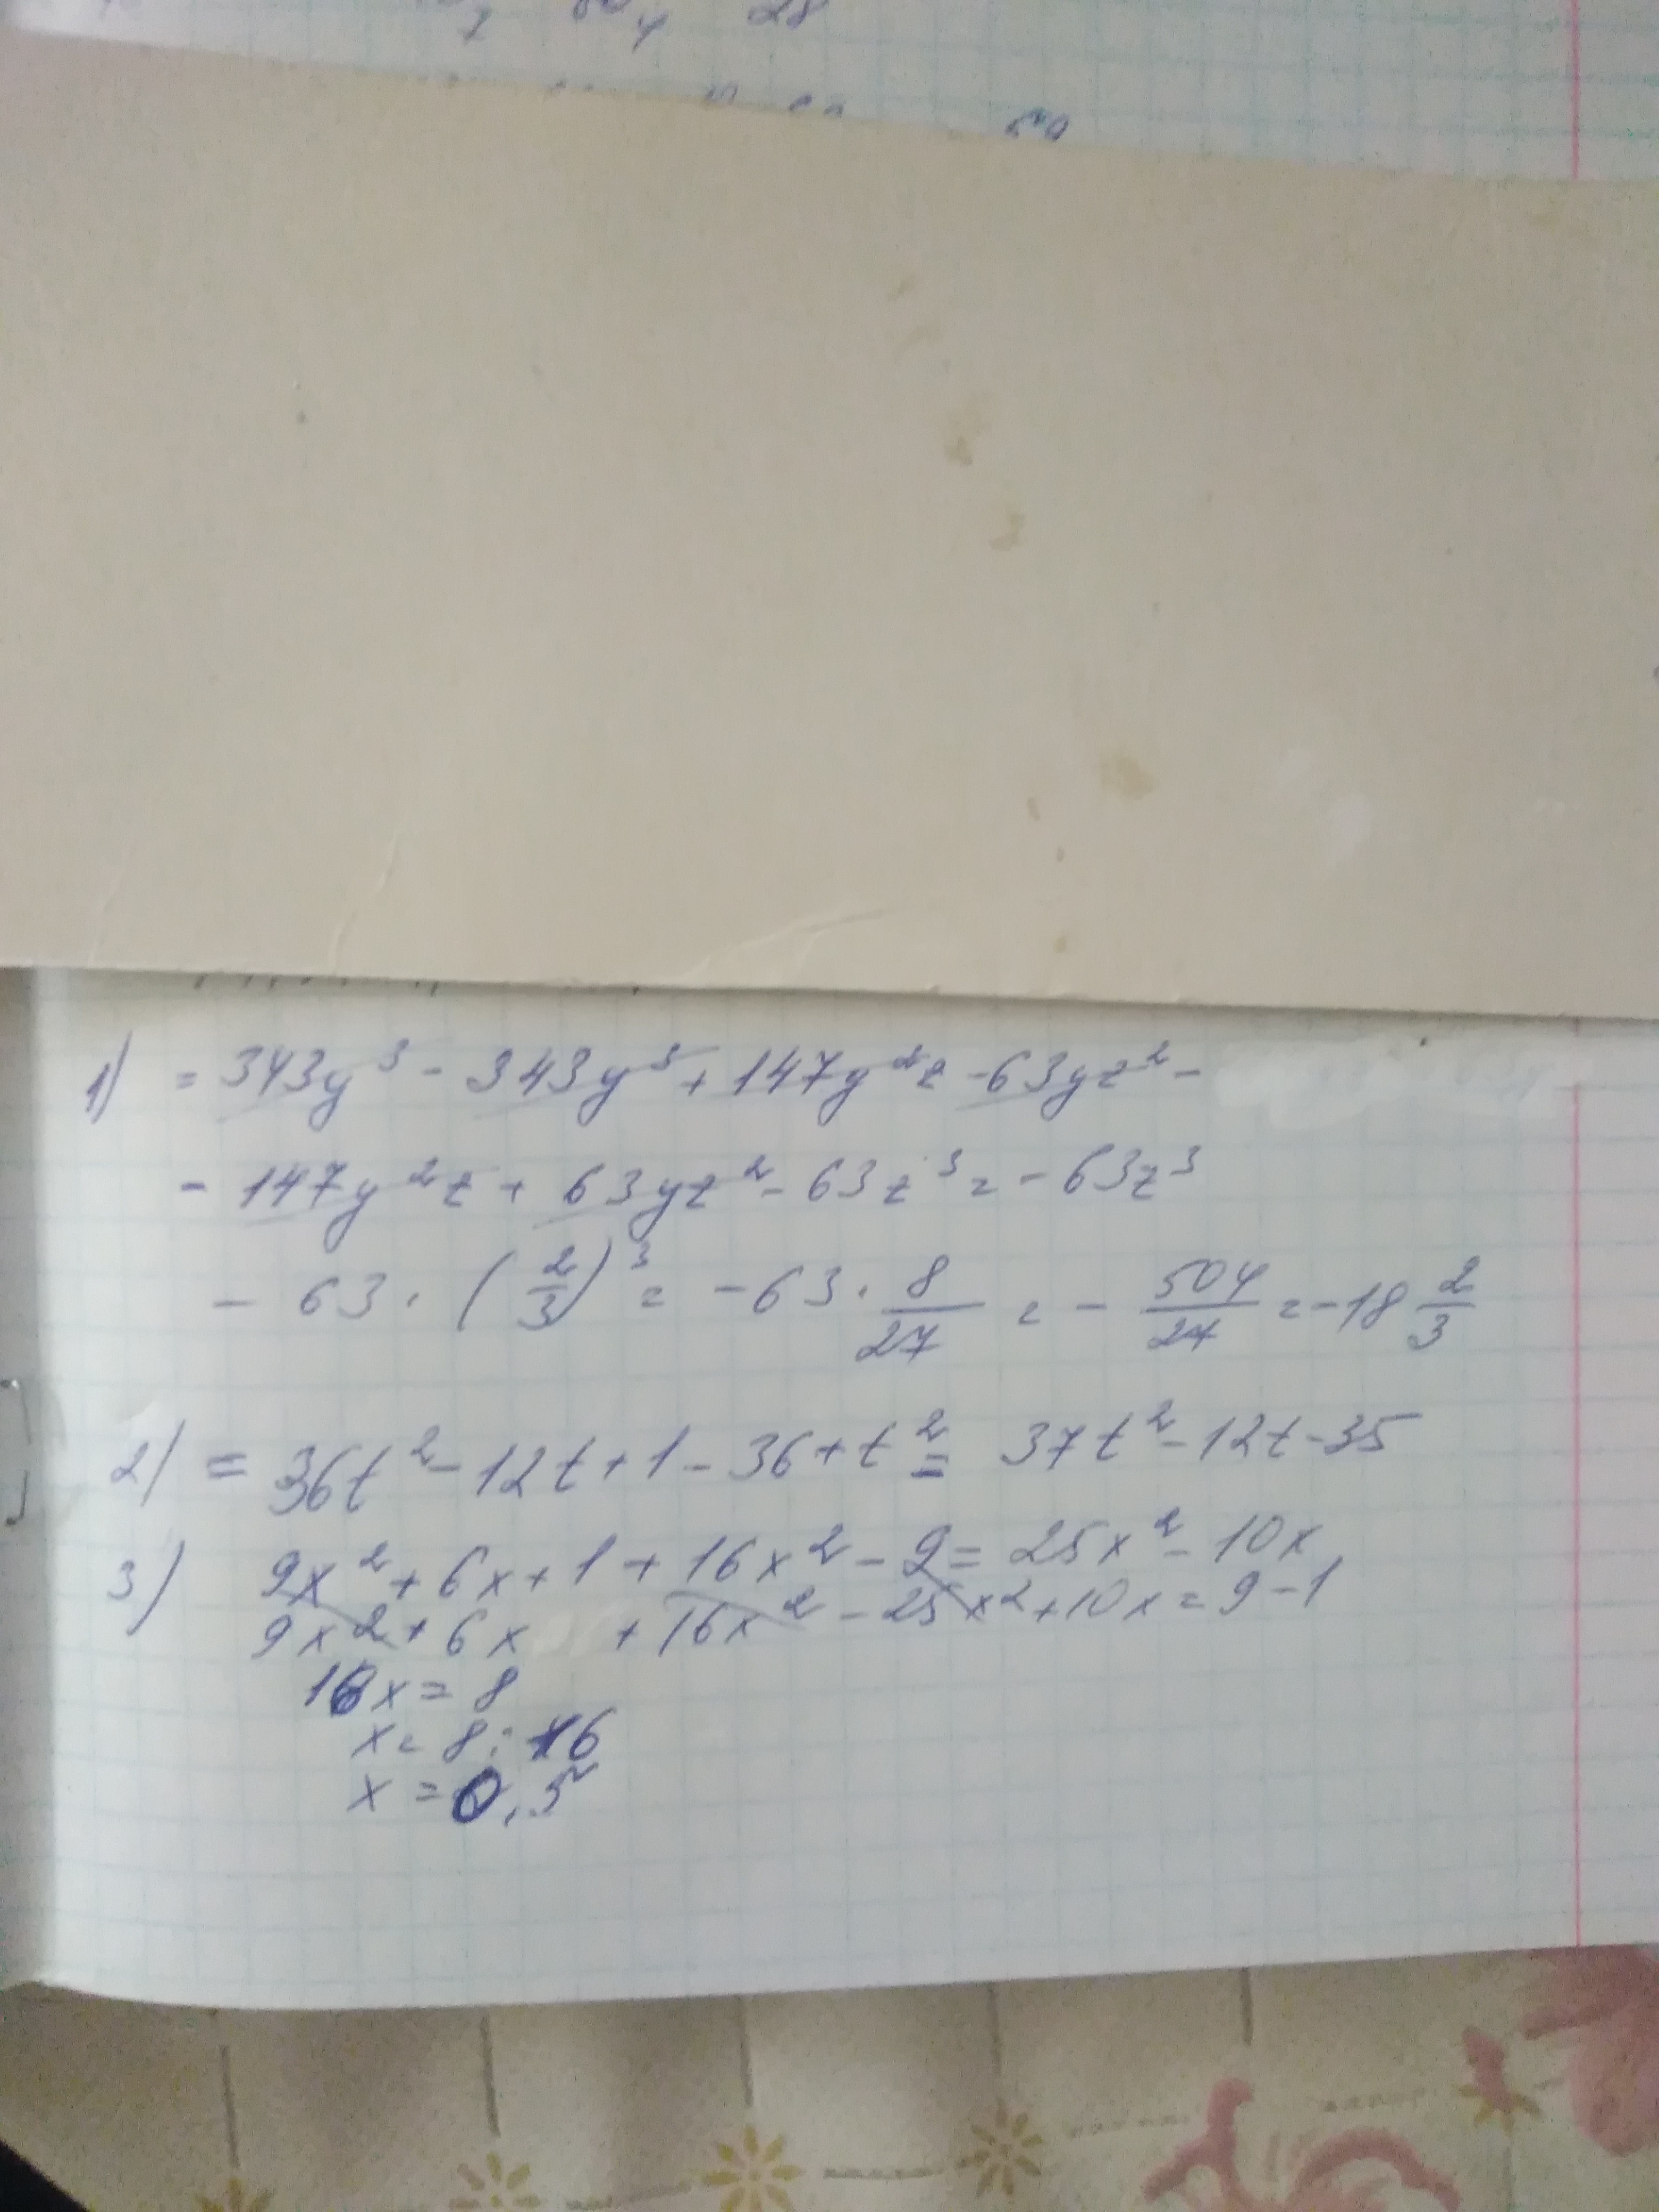 28
1) = 343y³ - 343y³ + 147y²z - 63yz² -
- 147y²z + 63yz² - 63z³ = - 63z³
- 63 · (2/3)³ = - 63 · 8/27 = - 504/27 = -18 2/3
2) = 36t² - 12t + 1 - 36 + t² = 37t² - 12t - 35
3) 9x² + 6x + 1 + 16x² - 9 = 25x² - 10x
9x² + 6x + 16x² - 25x² + 10x = 9 - 1
16x = 8
x = 8 : 16
x = 0,5